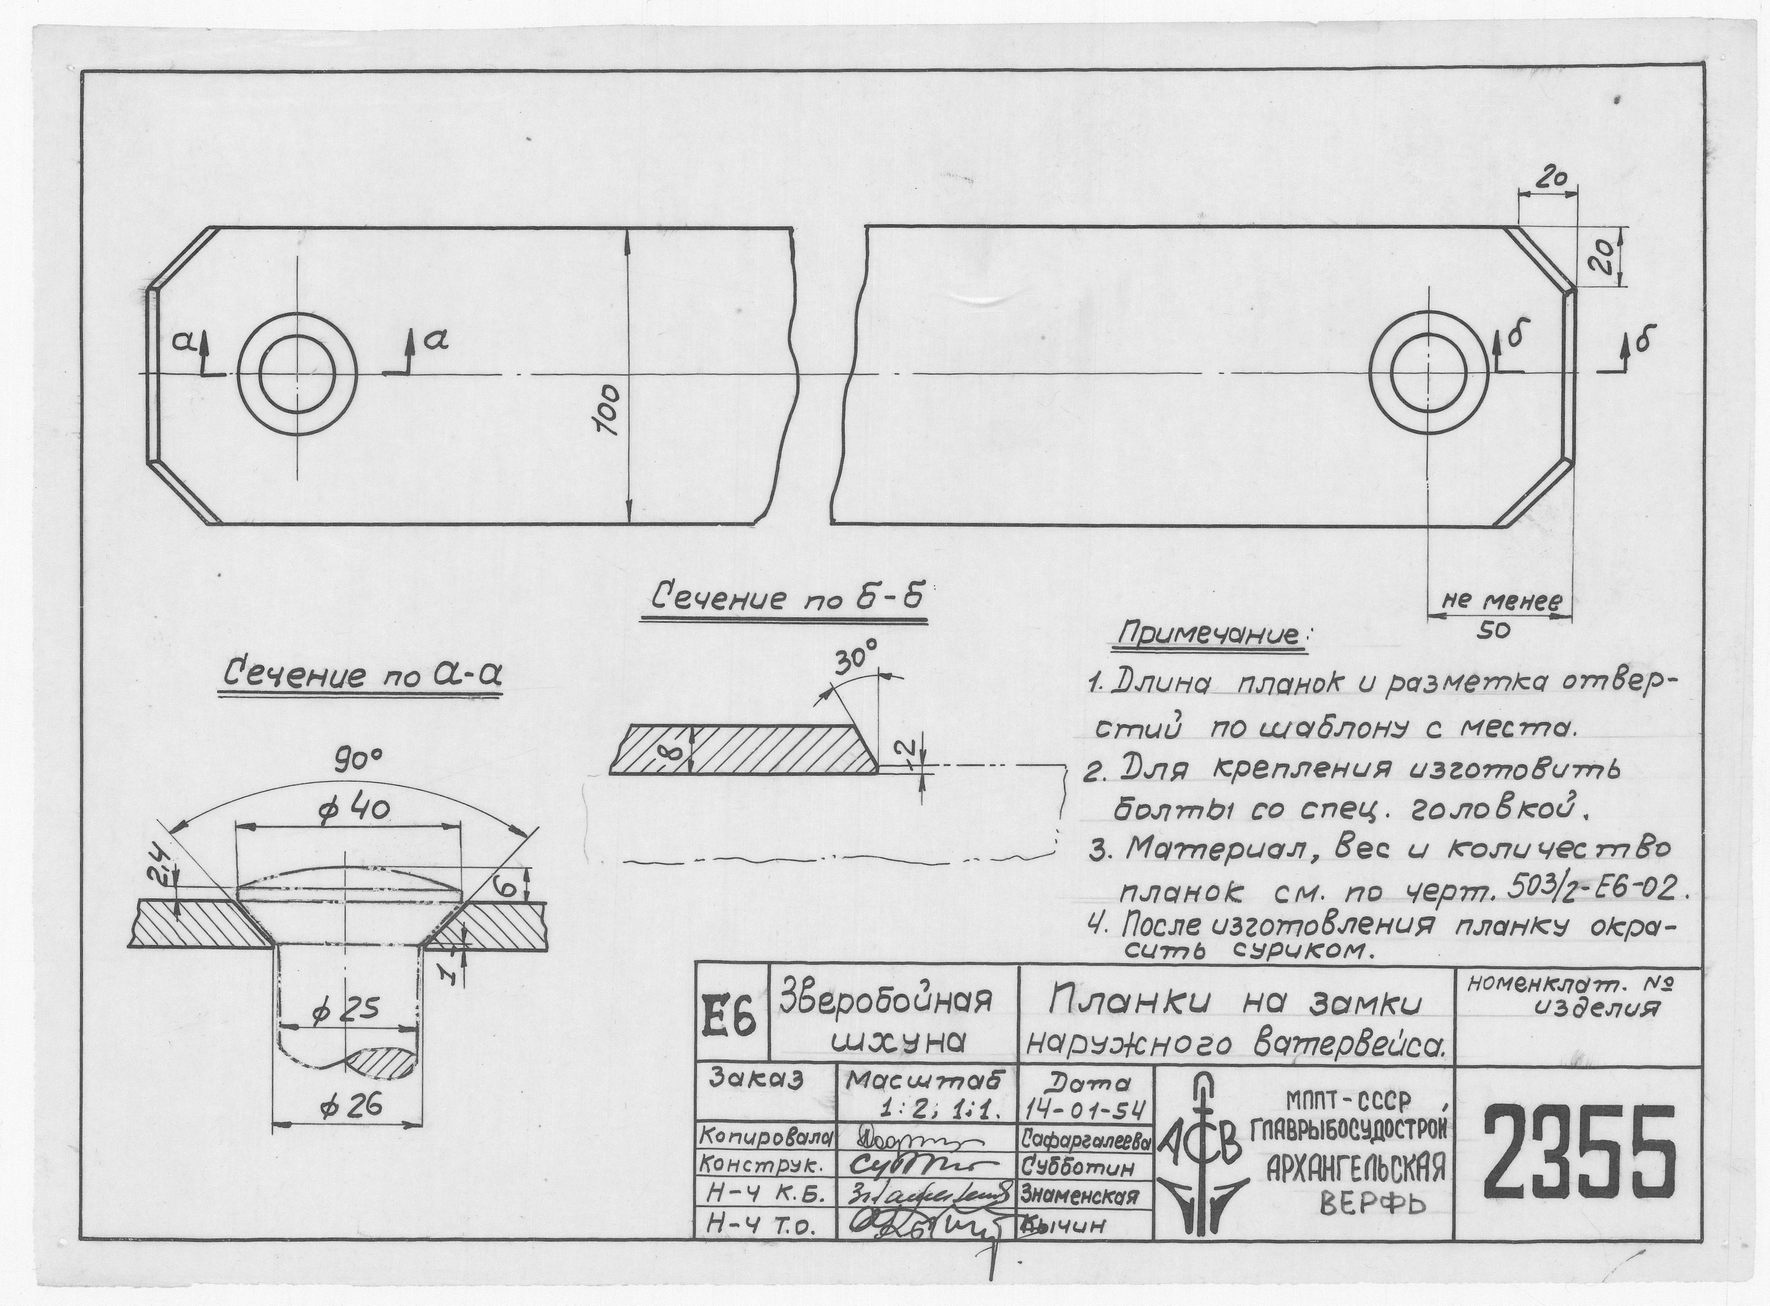 20
20
а
а
б
б
100
не менее
50
Сечение по б-б
30°
8
2
Сечение по а-а
90°
ф40
2,4
6
1
ф25
ф26
Примечание:
1. Длина планок и разметка отвер-
стий по шаблону с места.
2. Для крепления изготовить
болты со спец. головкой.
3. Материал, вес и количество
планок см. по черт. 503/2-Е6-02.
4. После изготовления планку окра-
сить суриком.
Е6
Зверобойная
шхуна
Планки на замки
наружного ватервейса.
номенклат. №
изделия
Заказ
Масштаб
1:2; 1:1.
Дата
14-01-54
Копировала
Сафаргалеева
Конструк.
Субботин
Н-ч К.Б.
Знаменская
Н-ч Т.О.
Кычин
АСВ
МППТ-СССР
ГЛАВРЫБОСУДОСТРОЙ
АРХАНГЕЛЬСКАЯ
ВЕРФЬ
2355